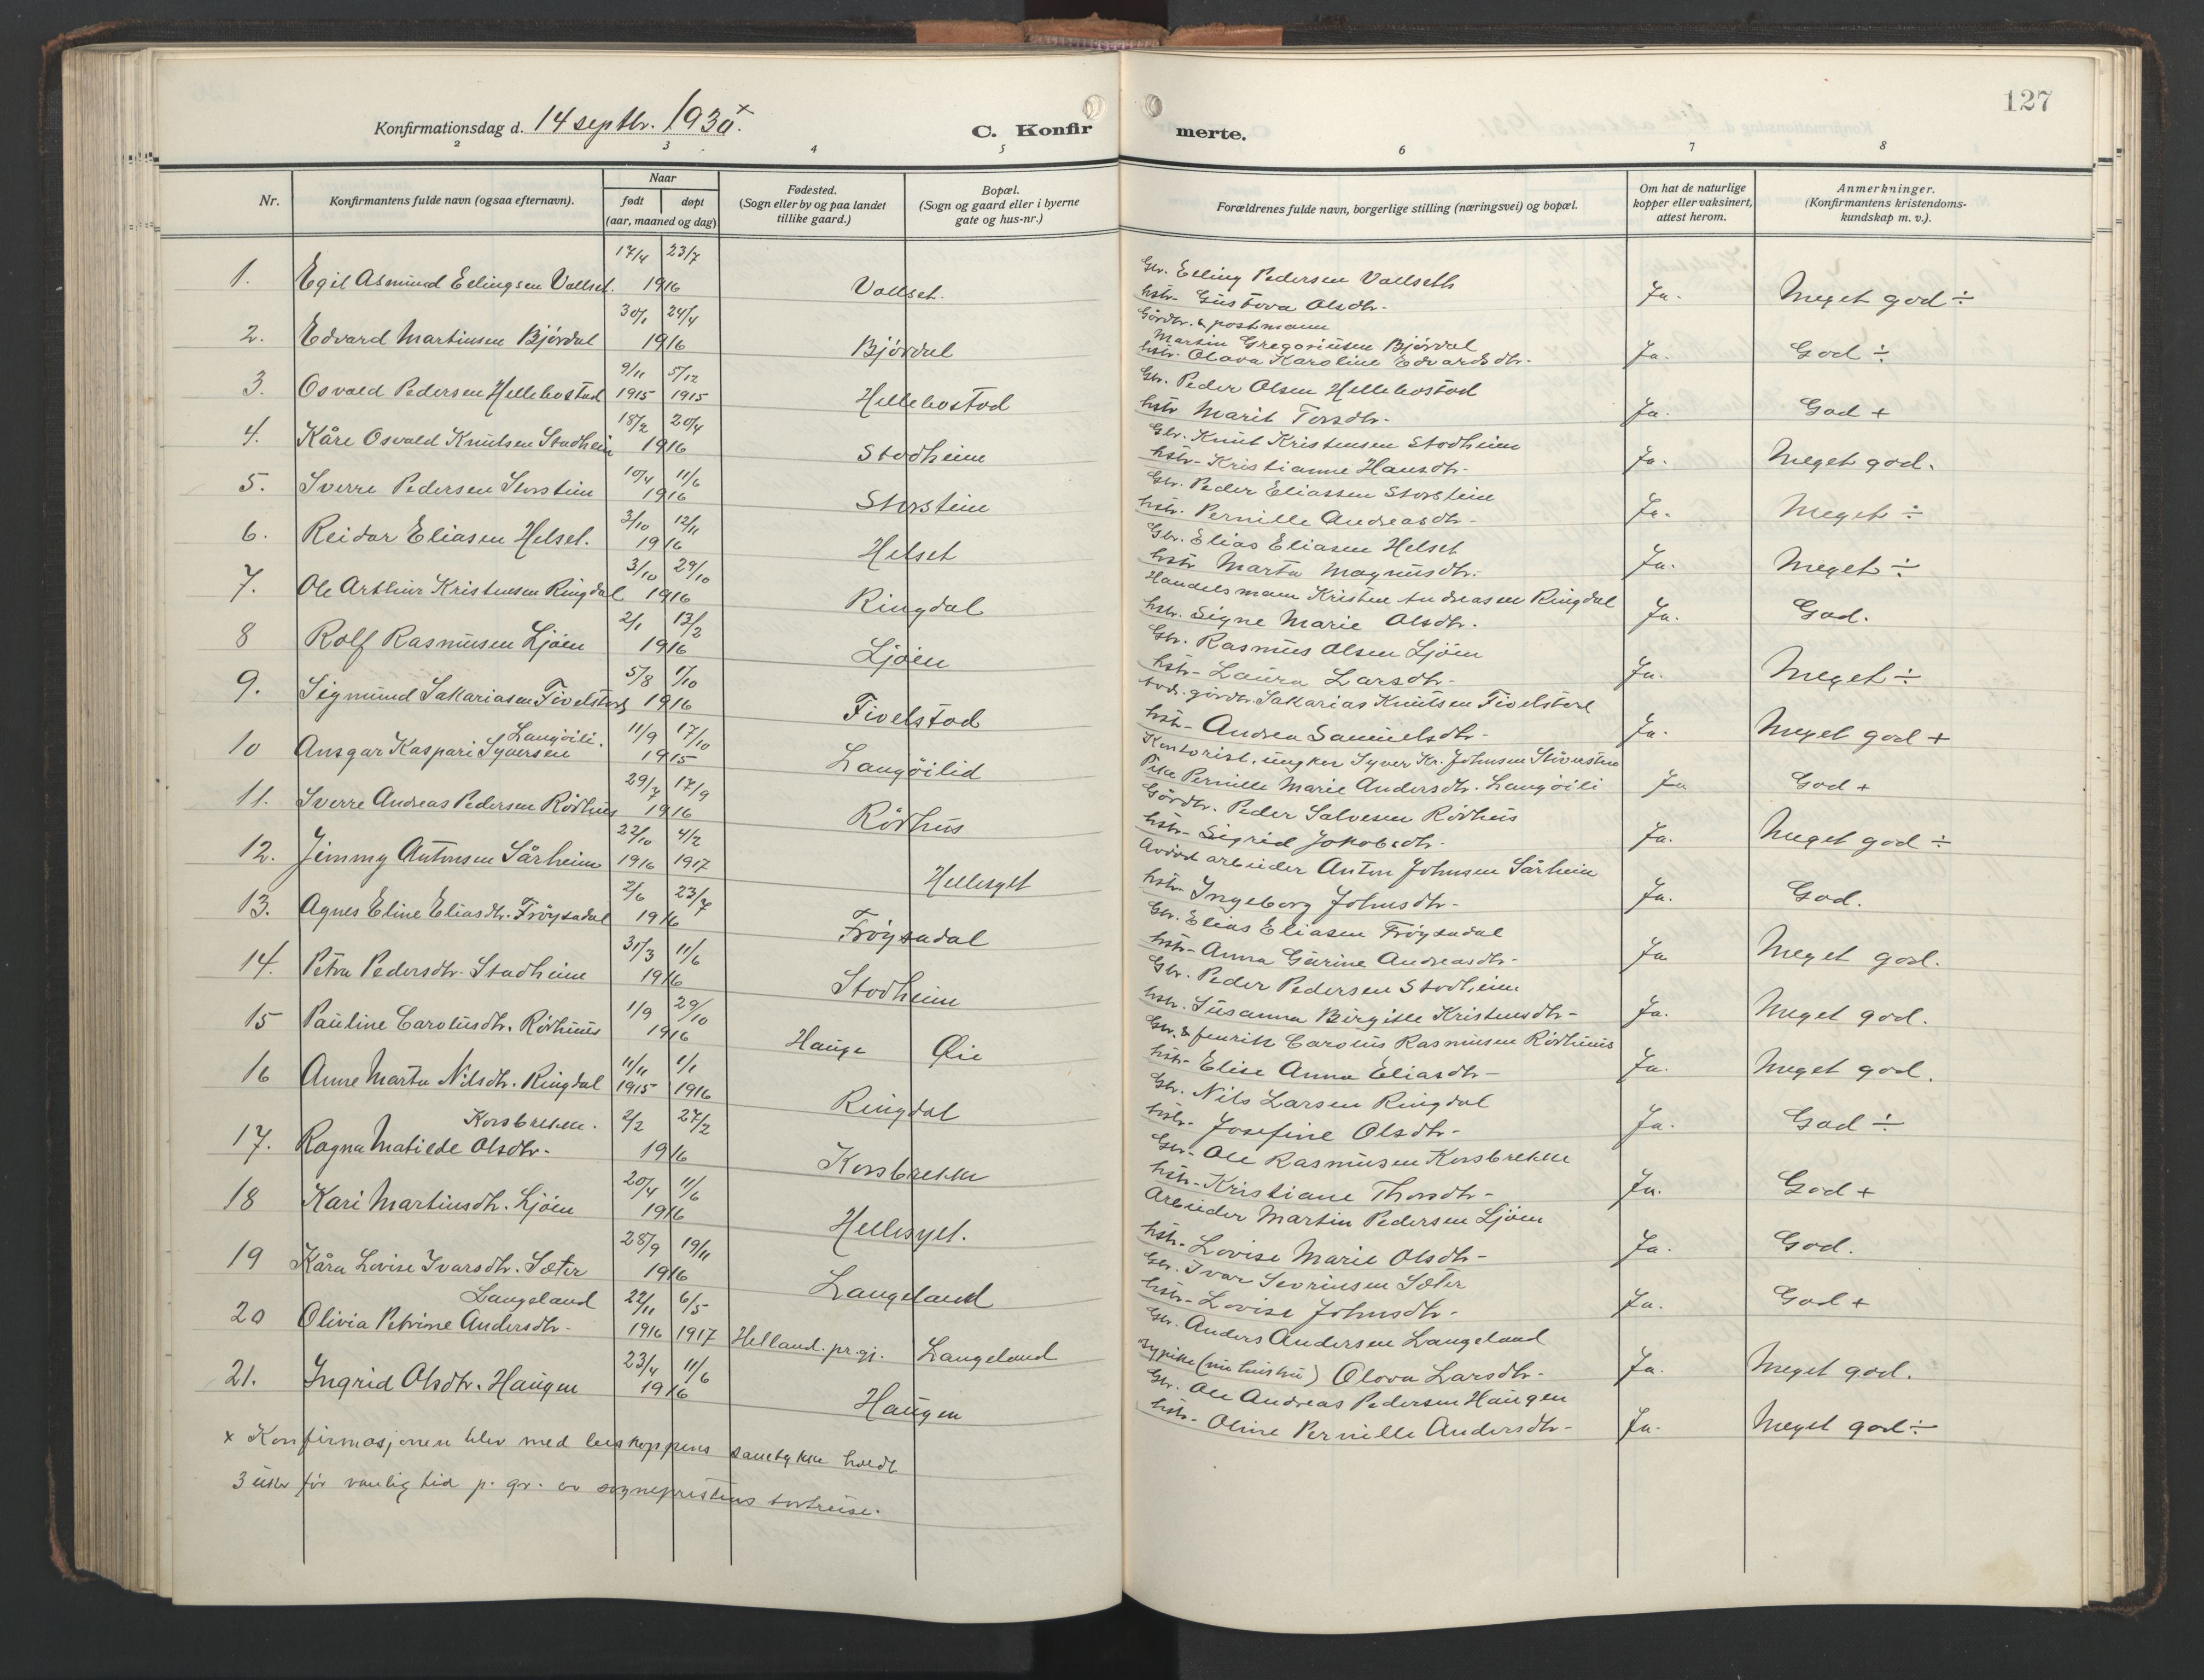 127
Konfirmationsdag d. 14 septbr. 1930.x
C. Konfirmerte.
2 3 4 5 6 7 8
Nr.
Konfirmantens fulde navn (ogsaa efternavn).
Naar
født døpt
(aar, maaned og dag)
Fødested.
(Sogn eller by og paa landet
tillike gaard.)
Bopæl.
(Sogn og gaard eller i byerne
gate og hus-nr.)
Forældrenes fulde navn, borgerlige stilling (næringsvei) og bopæl.
Om hat de naturlige
kopper eller vaksinert,
attest herom.
Anmerkninger.
(Konfirmantens kristendoms-
kundskap m. v.).
17/4 23/7
1. Egil Asmund Erlingsen Vollset. 1916 Vollset.
Gbr. Erling Pedersen Vollseth
hstr. Gustava Olsdtr.
Ja. Meget god ÷
30/1 24/4
2. Edvard Martinsen Björdal 1916 Bjórdal
Gördbr. & postmann
Martin Gregoriusen Bjórdal
hstr. Olava Karoline Edvardsdtr.
Ja. God ÷
9/11 5/12
3. Osvald Pedersen Hellebostad 1915 1915 Hellebostad
Gbr. Peder Olsen Hellebostad
hstr Marit Torsdtr.
Ja. God +
18/2 20/4
4. Kåre Osvald Knutsen Stadheim 1916 Stadheim
Gbr. Knut Kristensen Stadheim
hstr. Kristianne Hansdtr.
Ja. Meget god.
10/4 11/6
5. Sverre Pedersen Storstein 1916 Storstein
Gbr. Peder Eliassen Storstein
hstr. Pernille Andreasdtr.
Ja. Meget ÷
3/10 12/11
6. Reidar Eliasen Helset. 1916 Helset
Gbr. Elias Eliasen Helset
hstr Marta Magnusdtr.
Ja. Meget ÷
3/10 29/10
7. Ole Arthur Kristensen Ringdal 1916 Ringdal
Handelsmann Kristen Andreasen Ringdal
hstr. Signe Marie Olsdtr.
Ja. God.
2/1 13/2
8 Rolf Rasmusen Ljöen 1916 Ljöen
Gbr. Rasmus Olsen Ljöen
hstr. Laura Larsdtr.
Ja. Meget ÷
5/8 1/10
9. Sigmund Sakariasen Fivelstad 1916 Fivelstad
gördbr. Sakarias Knutsen Fivelstad
hstr. Andrea Samuelsdtr.
Ja. Meget god +
Langöili. 11/9 17/10
10 Ansgar Kaspari Syversen 1915 Langöilid
Kontorist, ungkar Syver Kr. Johnsen
Pike Pernille Marie Andersdtr. Langöili
Ja God +
29/7 17/9
11. Sverre Andreas Pedersen Rödhus 1916 Rödhus
Gördbr. Peder Salvesen Rödhus
hstr. Sigrid Jakobsdtr.
Ja. Meget god ÷
22/10 4/2
12. Jimmy Antonsen Sårheim 1916 1917 Hellesylt
Avdöd arbeider Anton Johnsen Sårheim
hstr. Ingeborg Johnsdtr.
Ja. God.
2/6 23/7
13. Agnes Eline Eliasdtr. Fröysadal 1916 Fröysadal
Gbr. Elias Eliasen Fröysadal
hstr. Anna Gurine Andreasdtr.
Ja Meget god.
31/3 11/6
14. Petra Pedersdtr. Stadheim 1916 Stadheim
Gbr. Peder Pedersen Stadheim
hstr. Susanna Birgitte Kristensdtr.
Ja. Meget god.
1/9 29/10
15 Pauline Carolusdtr. Rödhus 1916 Hauge Øie
Gbr. & fenrik Carolus Rasmusen Rödhus
hstr. Elise Anna Eliasdtr.
Ja. Meget god.
11/11 1/1
16 Anne Marta Nilsdtr. Ringdal 1915 1916 Ringdal
Gbr. Nils Larsen Ringdal
hstr. Josefine Olsdtr.
Ja. God ÷
Korsbrekke. 2/2 27/2
17. Ragna Matilde Olsdtr. 1916 Korsbrekke
Gbr. Ole Rasmusen Korsbrekke
hstr. Kristiane Thorsdtr.
Ja. God +
20/4 11/6
18 Kari Martinsdtr. Ljöen 1916 Hellesylt.
Arbeider Martin Pedersen Ljöen
hstr. Lovise Marie Olsdtr.
Ja. God.
28/9 19/11
19 Kåra Lovise Ivarsdtr. Sæter 1916 Langeland
Gbr. Ivar Sevrinsen Sæter
hstr. Lovise Johnsdtr.
Ja. God +
Langeland 22/11 6/5
20 Olivia Petrine Andersdtr. 1916 1917 Helland. pr.gj. Langeland
Gbr. Anders Andersen Langeland
sypike (nu hustru) Olava Larsdtr.
Ja. Meget god.
23/4 11/6
21. Ingrid Olsdtr. Haugen 1916 Haugen
Gbr. Ole Andreas Pedersen Haugen
hstr. Oline Pernille Andersdtr.
Ja. Meget god ÷
x Konfirmasjonen blev med biskoppens samtykke holdt
3 uker för vanlig tid p. gr. av sogneprestens bortreise.